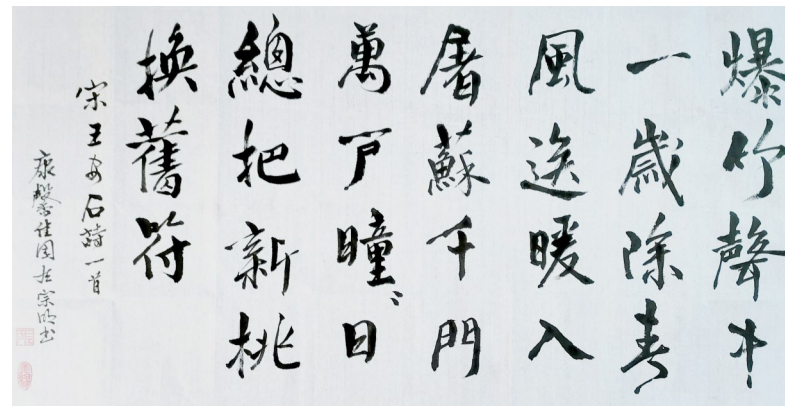 爆竹聲中
一歲除春
風送暖入
屠蘇千門
萬戶曈〻日
總把新桃
換舊符
宋王安石詩一首
康馨佳園 宗明書